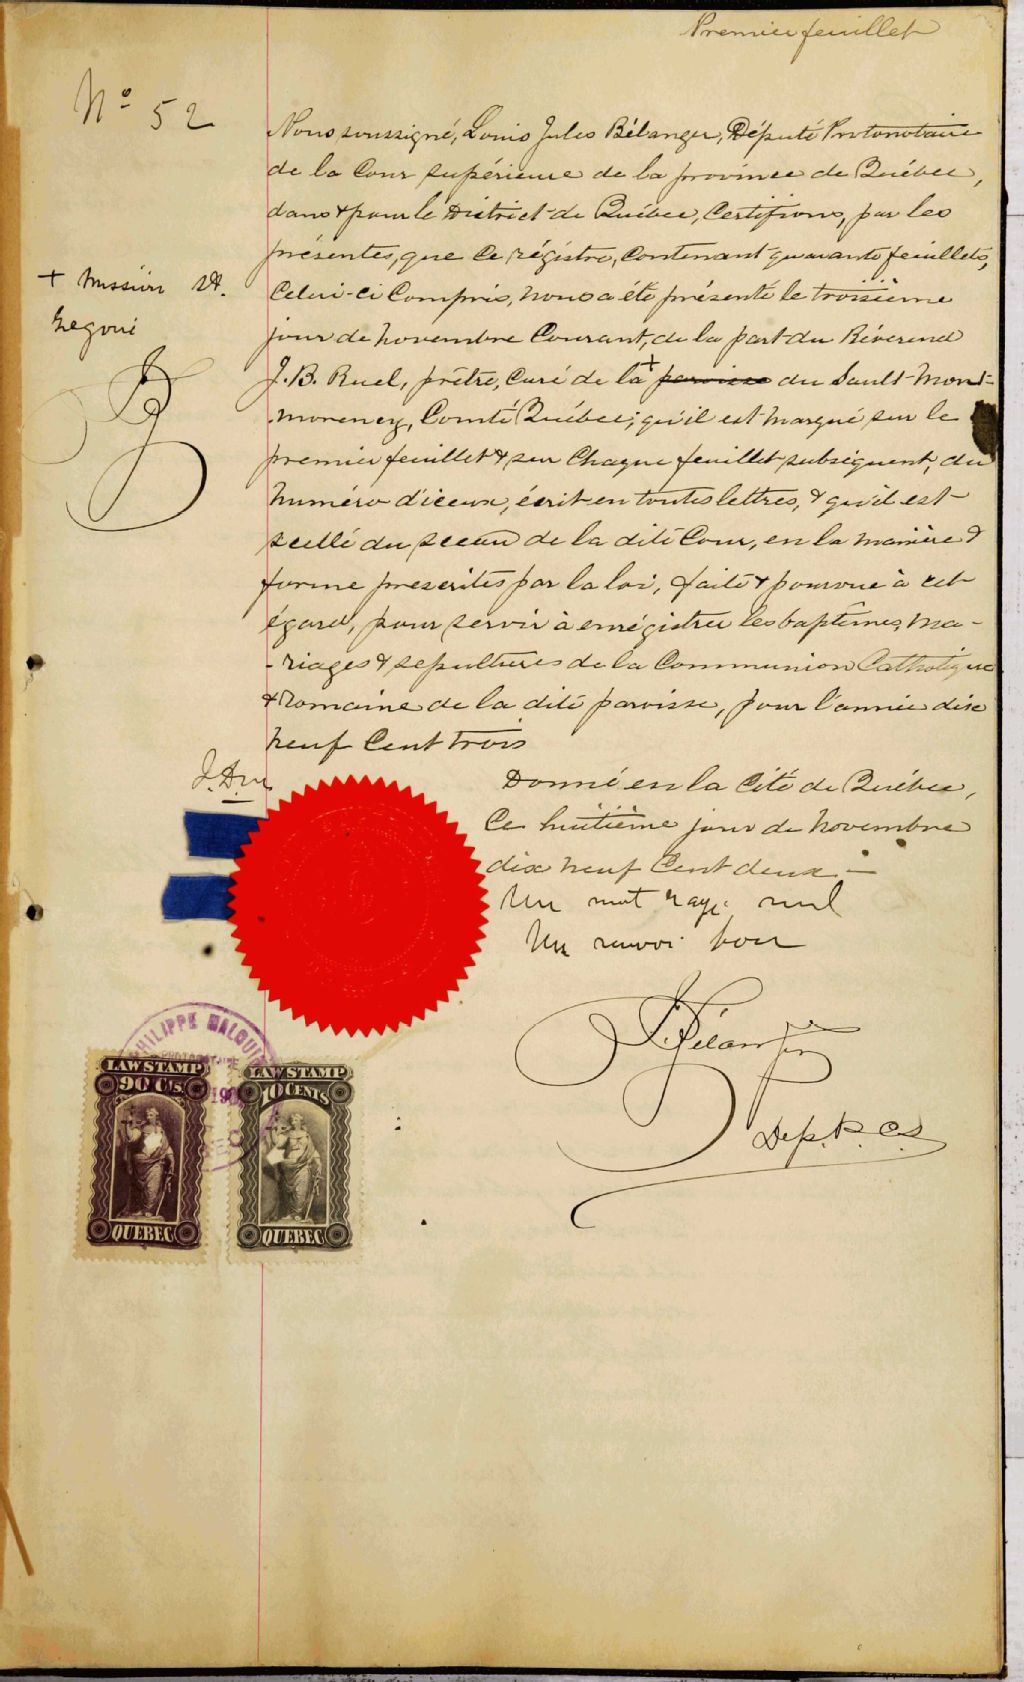 Premier feuillet
No 52
Nous soussigné, Louis Jules Bélanger, Député Protonotaire
de la Cour supérieure de la province de Québec,
dans & pour le District de Québec, Certifions, par les
présentes, que ce régistre, Contenant quarante feuillets,
Celui-ci Compris, nous a été présenté le troisième
jour de novembre Courant, de la part du Révérend
J. B. Ruel, prêtre, Curé de la + paroisse du Sault-Mont-
morency, Comté Québec; qu'il est marqué sur le
premier feuillet & sur Chaque feuillet subséquent, du
numéro d'iceux, écrit en toutes lettres, & qu'il est
scellé du sceau de la dite Cour, en la manière &
forme prescrites par la loi, faite & pourvue à cet
égard, pour servir à enrégistrer les baptêmes, ma-
-riages & sépultures de la Communion Catholique
& romaine de la dite paroisse, pour l'année dix
neuf Cent trois
+ mission St.
Gregoire
Donné en la Cité de Québec,
Ce huitième jour de novembre
dix neuf Cent deux.—
Un mot rayé nul
Un renvoi bon
Dep. P. C. S.
PHILIPPE MALOUIN
LAW STAMP
90 Cts.
QUEBEC
LAW STAMP
10 CENTS
QUEBEC